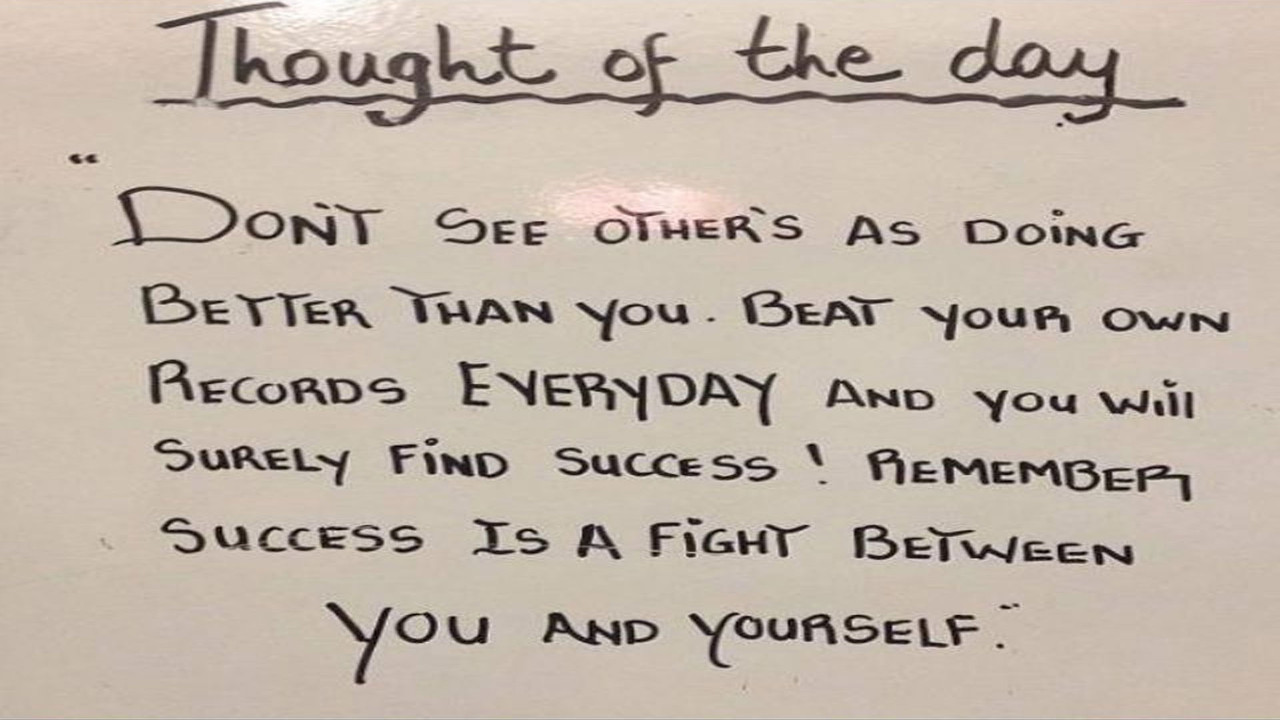 Thought of the day
“
DON'T SEE OTHER'S AS DOiNG
BETTER THAN YOU. BEAT YOUR OWN
RECORDS EVERYDAY AND YOU Will
SURELY FiND SUCCESS ! REMEMBER,
SUCCESS IS A FiGHT BETWEEN
YOU AND YOURSELF.”